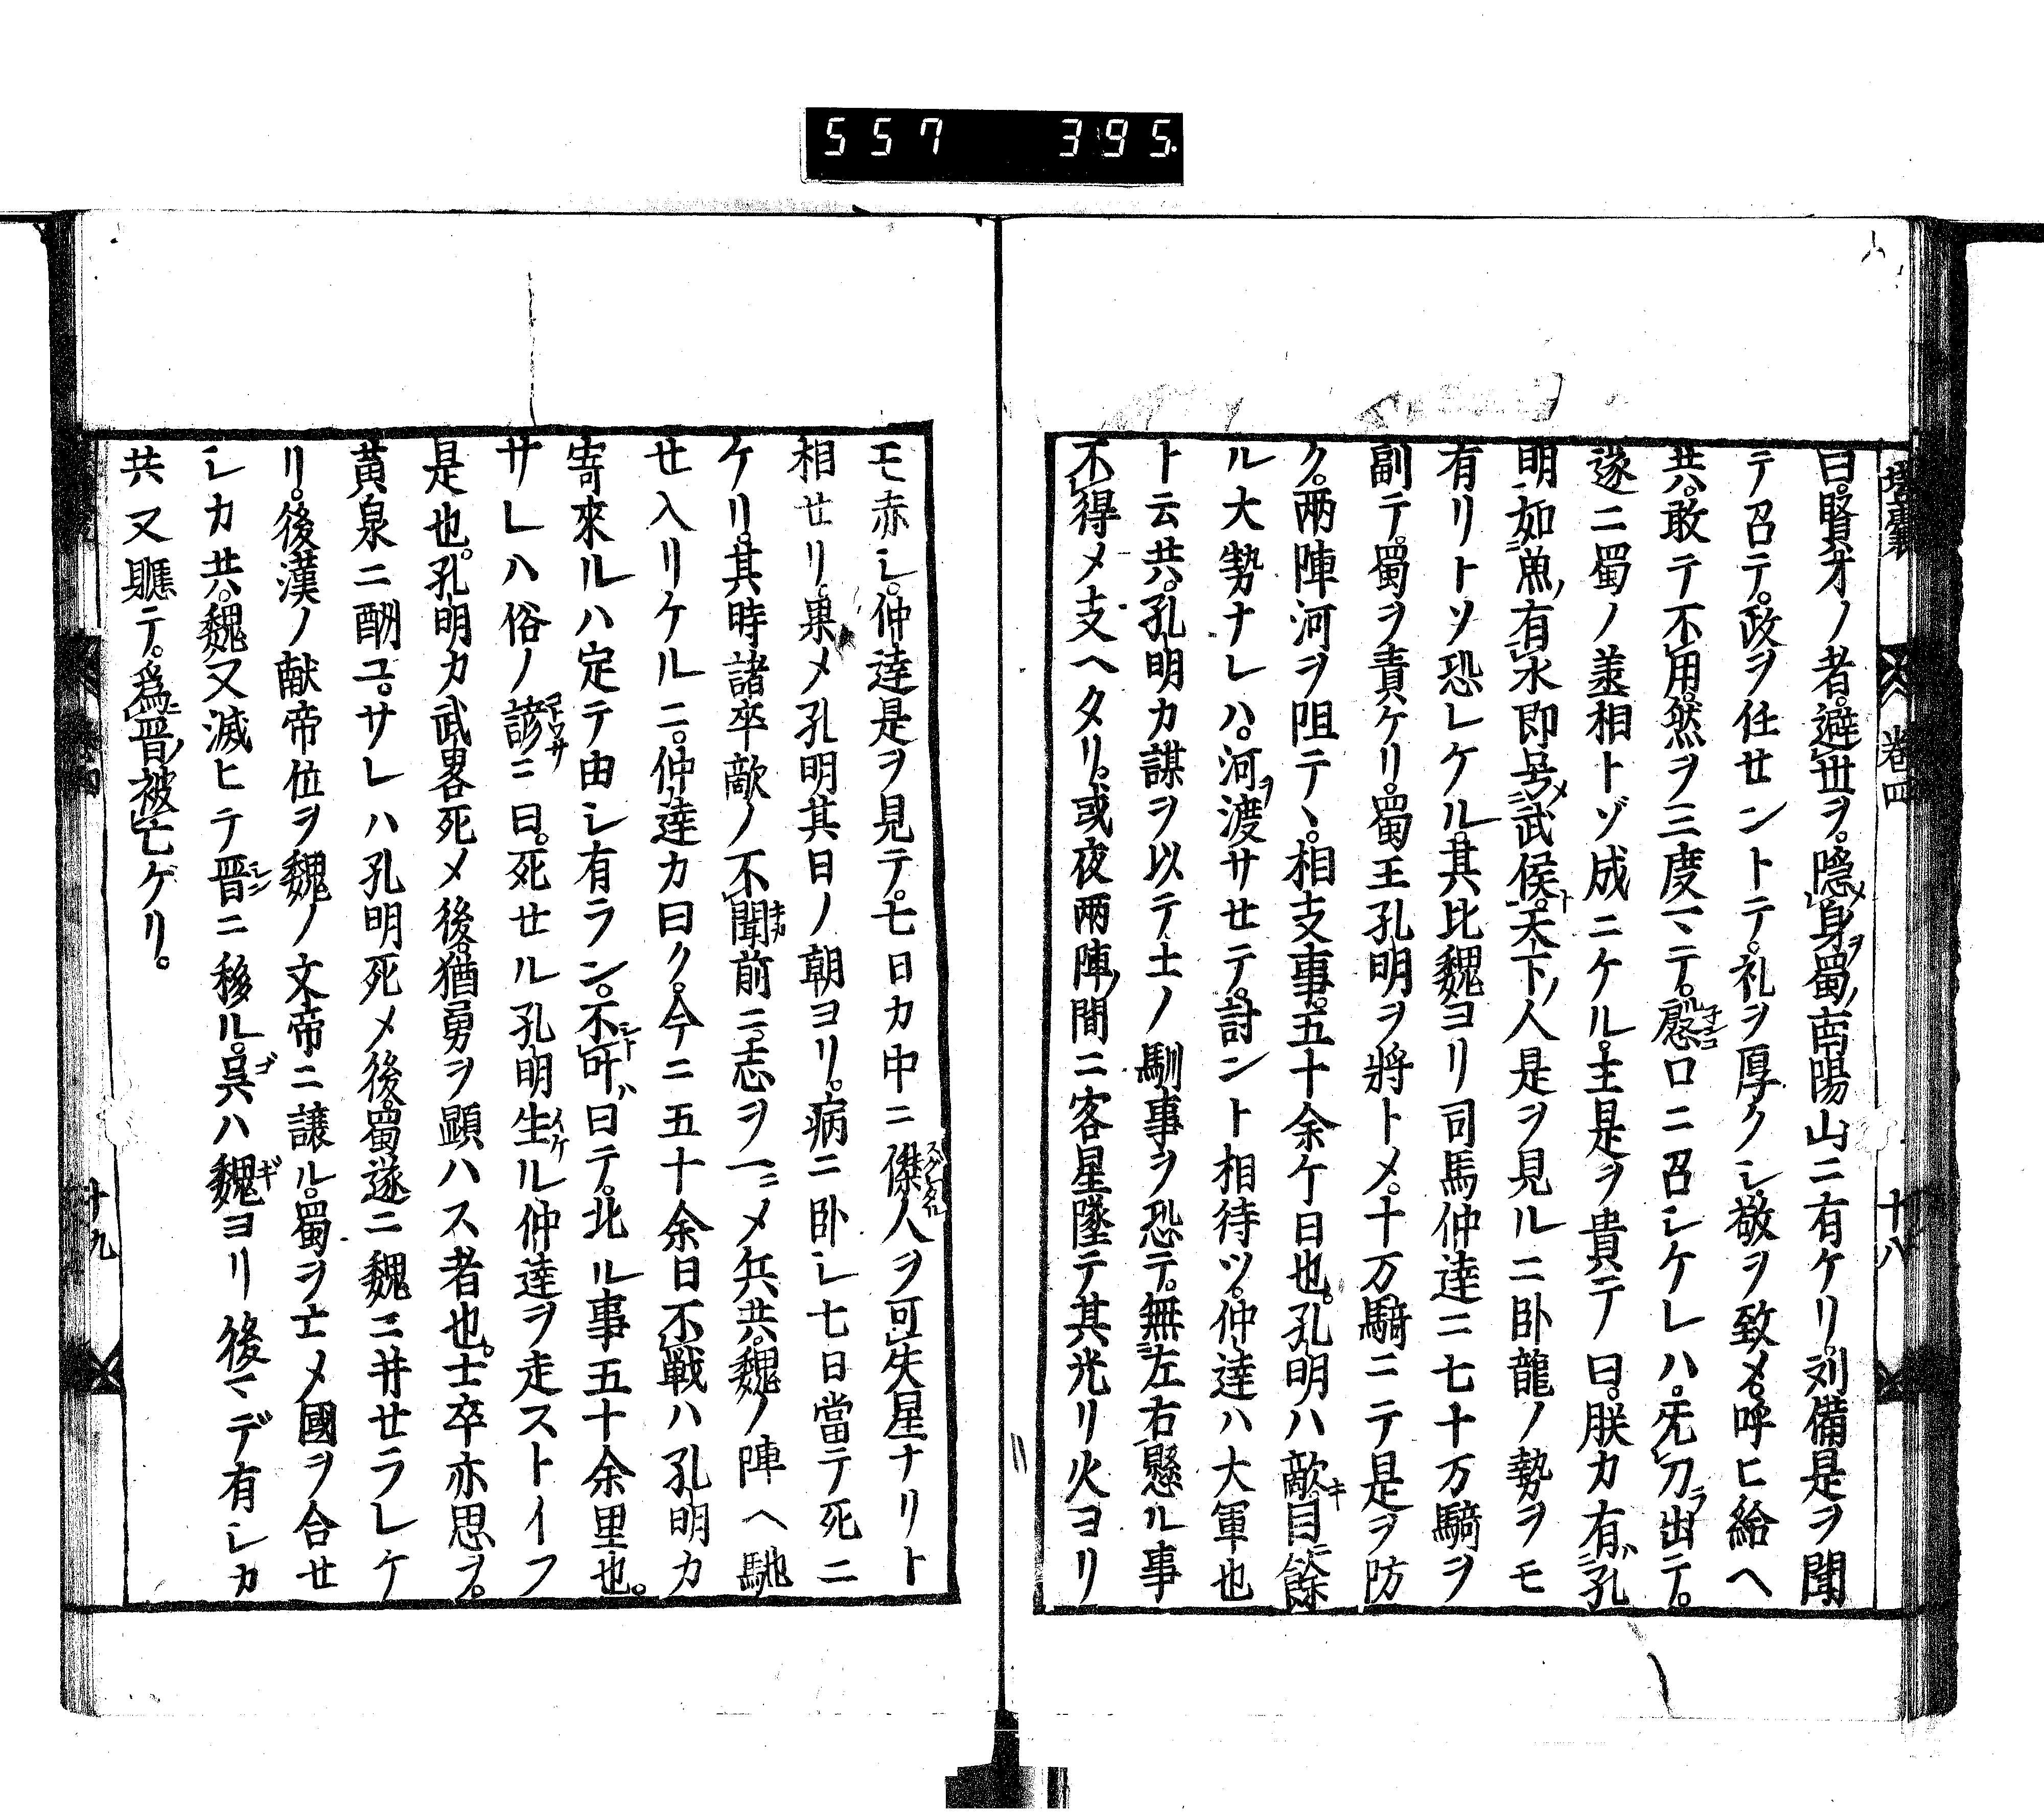 557 395.
壒嚢 巻四 十八
曰。賢才ノ者。避世ヲ。隠身ヲ蜀ノ南陽山ニ有ケリ。刘備是ヲ聞
テ召テ。政ヲ任せントテ。礼ヲ厚クシ敬ヲ致メ。呼ヒ給ヘ
共。敢テ不用。然ヲ三度マテ。慇ロニ召シケレハ。旡刀出テ。
遂ニ蜀ノ羕相トゾ成ニケル。主是ヲ貴テノ曰。朕カ有孔
明如魚ノ有水即号メ武侯ト。天下ノ人是ヲ見ルニ卧龍ノ勢ヲモ
有リトソ恐レケル。其比魏ヨリ司馬仲逹ニ七十万騎ヲ
副テ。蜀ヲ責ケリ。蜀王孔明ヲ將トメ。十万騎ニテ是ヲ防
ク。兩陣河ヲ阻テヽ。相支事。五十余ケ日也。孔明ハ敵キ目ニ餘
ル大勢ナレハ。河ヲ渡サせテ。討ント相待ツ。仲逹ハ大軍也
ト云共。孔明カ謀ヲ以テ士ノ馴事ヲ恐テ。無左右懸ル事
不得メ支ヘタリ。或夜兩陣ノ間ニ客星墜テ其光リ火ヨリ
モ赤シ。仲逹是ヲ見テ。七日カ中ニ傑人ヲ可失星ナリト
相せリ。果メ孔明其日ノ朝ヨリ。病ニ卧シ七日當テ死ニ
ケリ。其時諸卒敵ノ不聞前ニ。志ヲ一ニメ兵共。魏ノ陣ヘ馳
せ入リケルニ。仲逹カ曰ク。今ニ五十余日不戦ハ孔明カ
寄來ルハ定テ由シ有ラン。不可曰テ。北ル事五十余里也。
サレハ俗ノ諺ニ曰。死せル孔明生ル仲逹ヲ走ストイフ
是也。孔明カ武畧死メ後猶勇ヲ顕ハス者也。士卒亦思ヲ。
黄泉ニ酬ユ。サレハ孔明死メ後。蜀遂ニ魏ニ并せラレケ
リ。後漢ノ献帝位ヲ魏ノ文帝ニ譲ル。蜀ヲ亡メ國ヲ合せ
シカ共。魏又滅ヒテ晋ニ移ル。呉ハ魏ヨリ後マデ有シカ
共又軈テ。爲晋ノ被亡ケリ。
十九